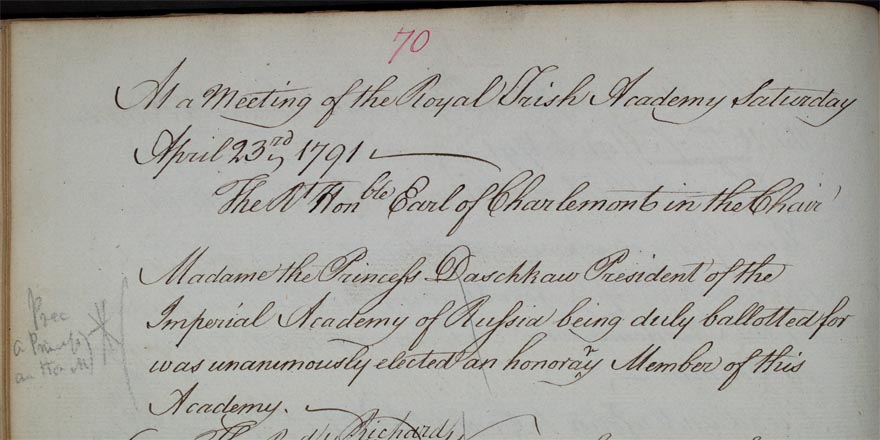 70
At a Meeting of the Royal Irish Academy Saturday
April 23rd, 1791
The Rt Honble Earl of Charlemont in the Chair
Madame the Princess Daschkaw President of the
Imperial Academy of Russia being duly ballotted for
was unanimously elected an honorary Member of this
Academy.
a Princess
an Hon M
Richard